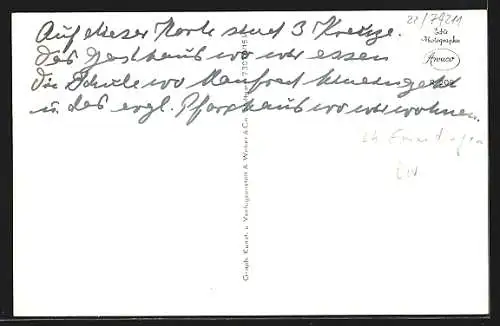 Auf dieser Karte sind 3 Kreuze.
Das Gasthaus wo wir essen
Die Schule wo Manfred hineingeht
u. das evgl. Pfarrhaus wo wir wohnen.
22/74211
Echte
Photographie
Graph. Kunst- u. Verlagsanstalt A. Weber & Co.